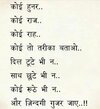 कोई हुनर..
कोई राज..
कोई राह..
कोई तो तरीका बताओ..
दिल टूटे भी न..
साथ छूटे भी न..
कोई रूठे भी न..
और ज़िन्दगी गुजर जाए..!!